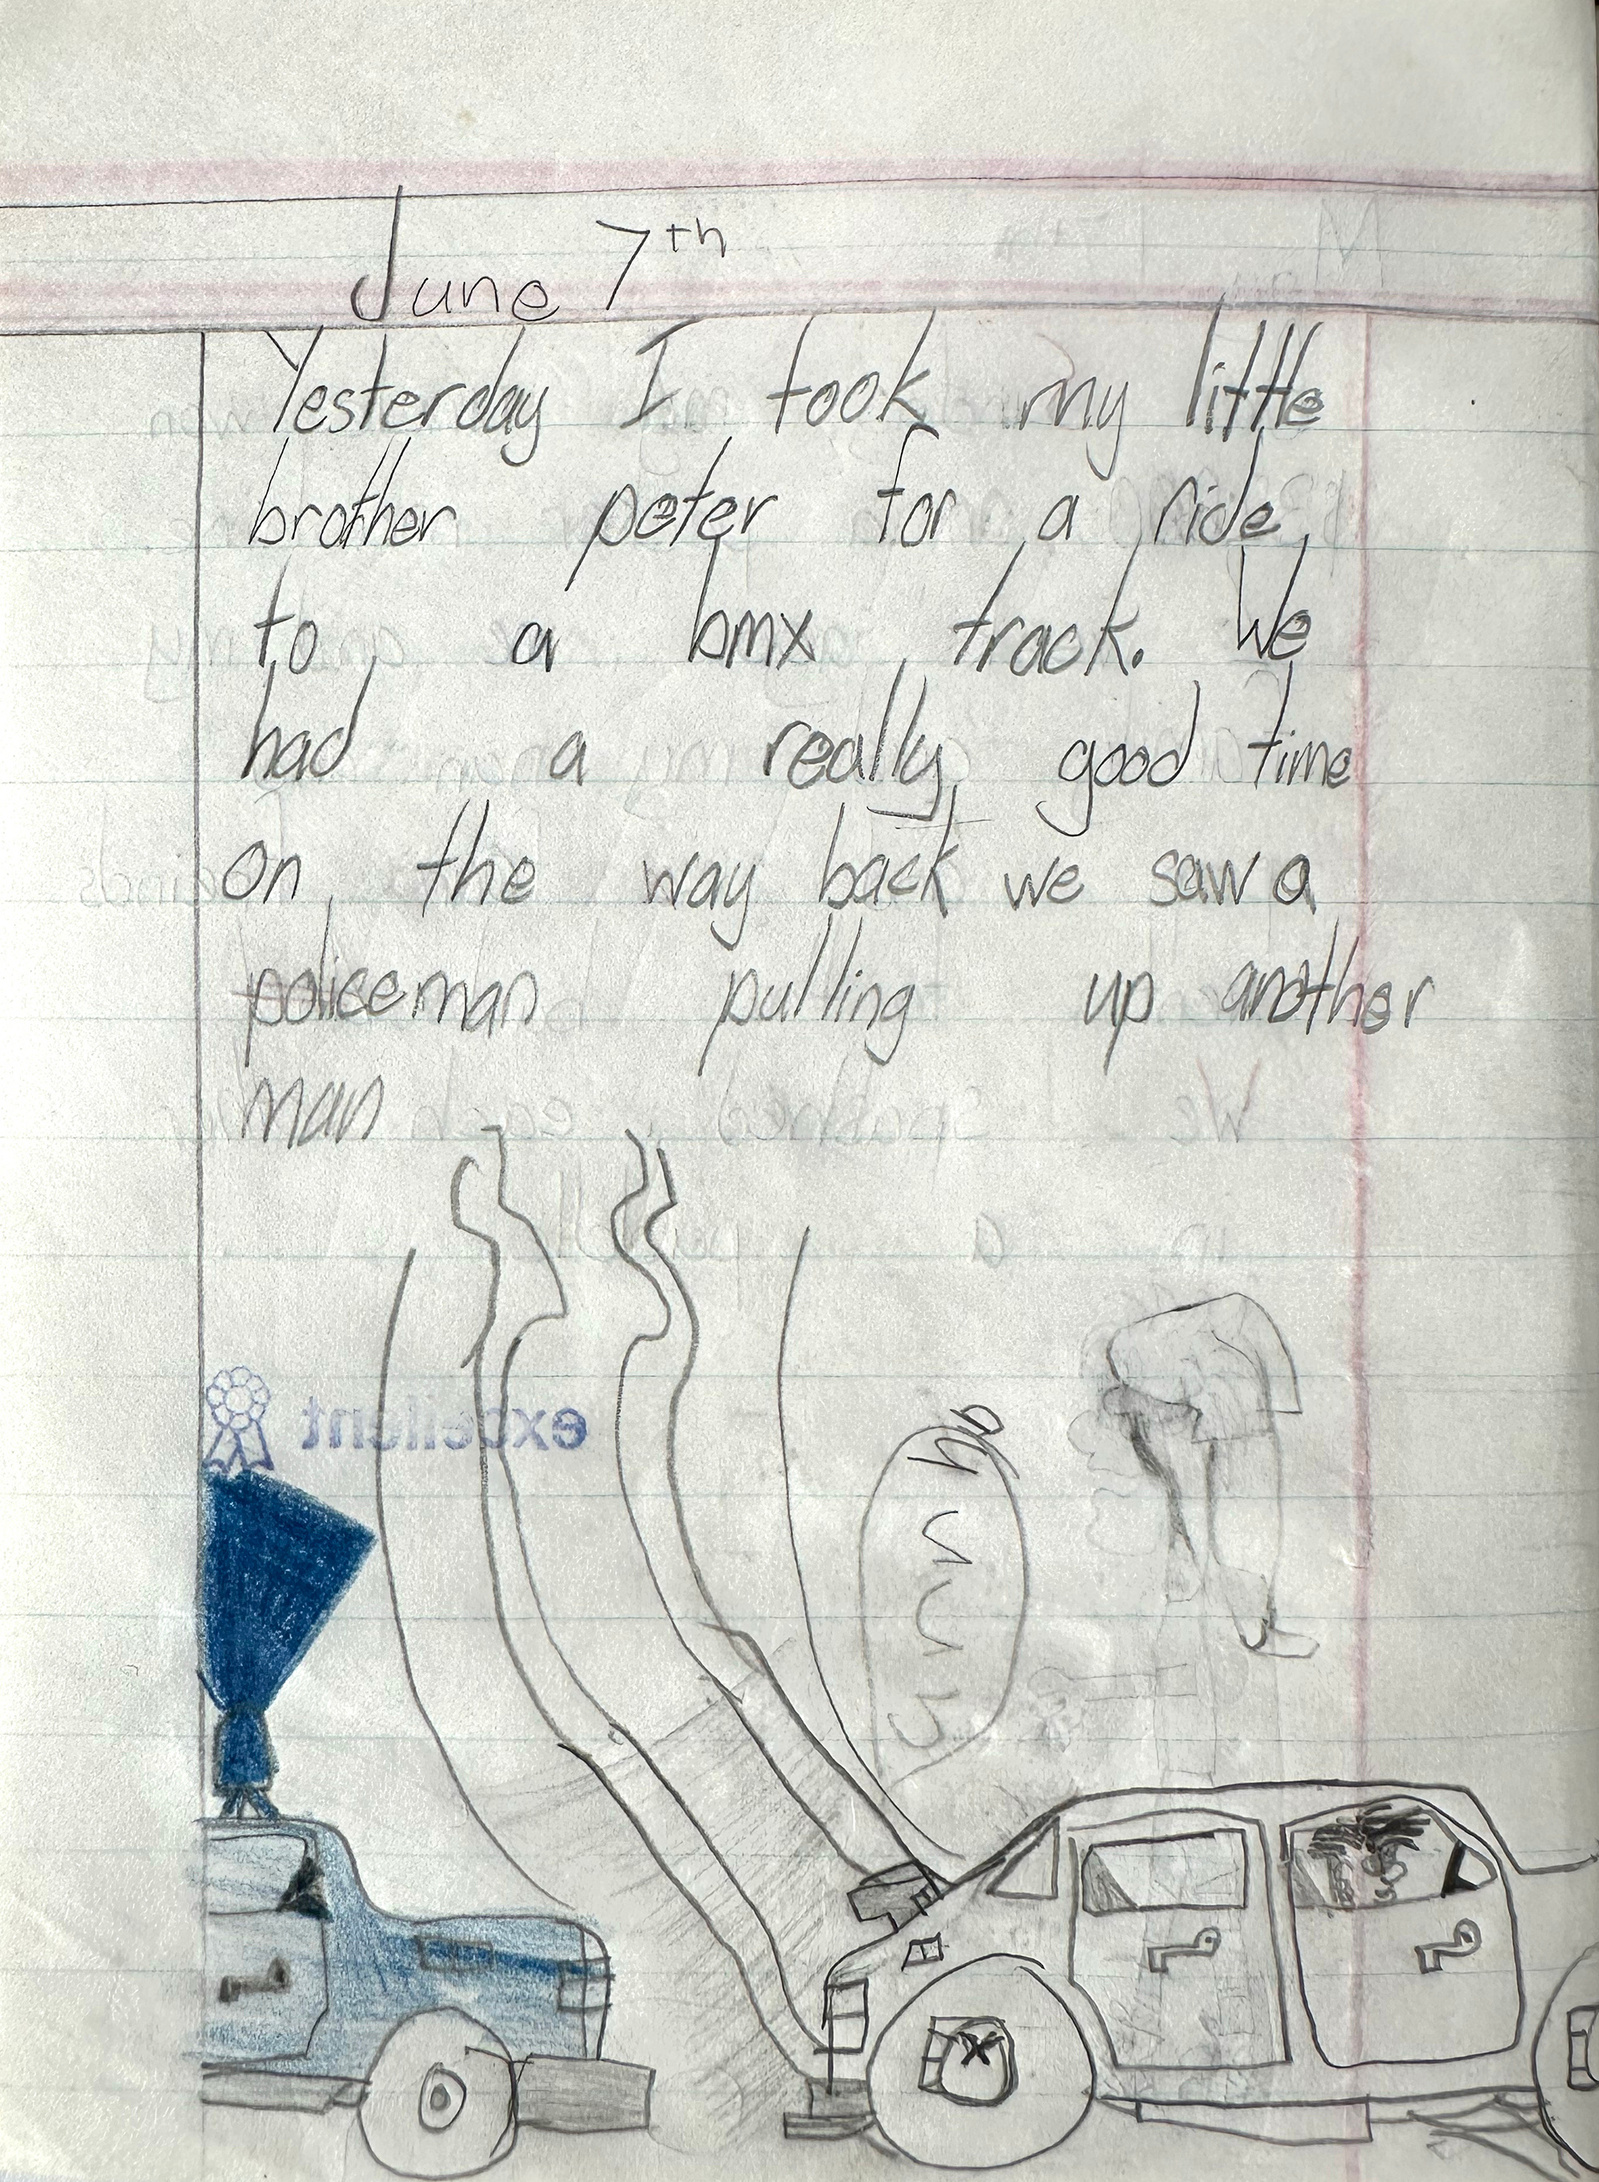 June 7th
Yesterday I took my little
brother peter for a ride
to a bmx track. We
had a really good time
on the way back we saw a
policeman pulling up another
man
excellent